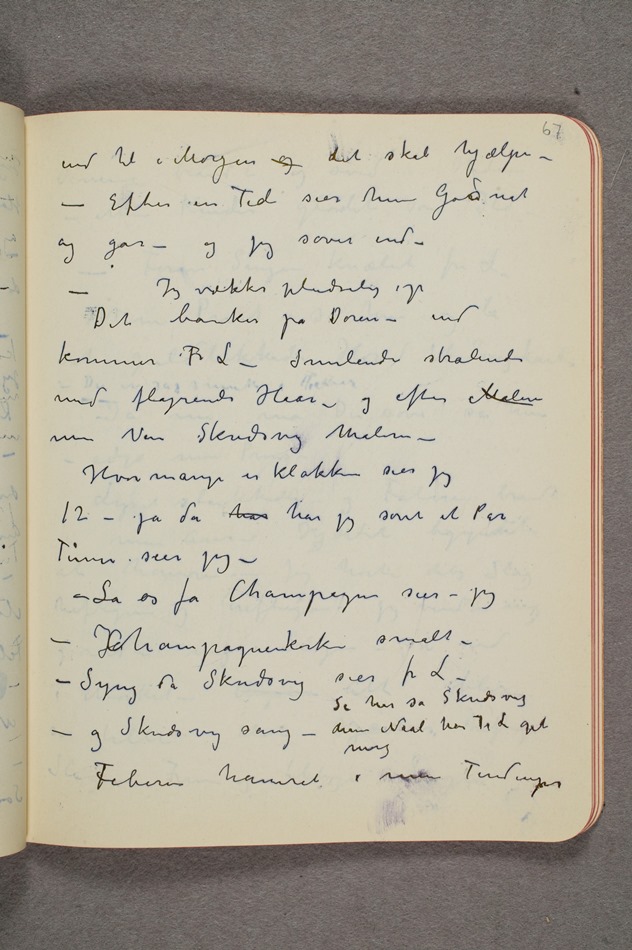 67
ind til i Morgen og det skal hjælpe –
– Efter en Tid sier hun Godnat
og går – og jeg sover ind –
– Jg vækkes pludselig op
Det banker på Doren – ind
kommer Fr L – Smilende strålende
med flagrende Haar – og efter Malern
min Ven Skredsvig Malern –
Hvormange er klokken sier jg
12 – ja da har har jg sovet et Par
Timer sier jg –
– La os få Champagne sier – jg
– Champagnenkorken smalt –
– Syng da Skredsvig sier fr L –
– og Skredsvig sang –
Se her sa Skredsvig
denne Naal har Fr L get
mig
Feberen hamret i mine Tindinger